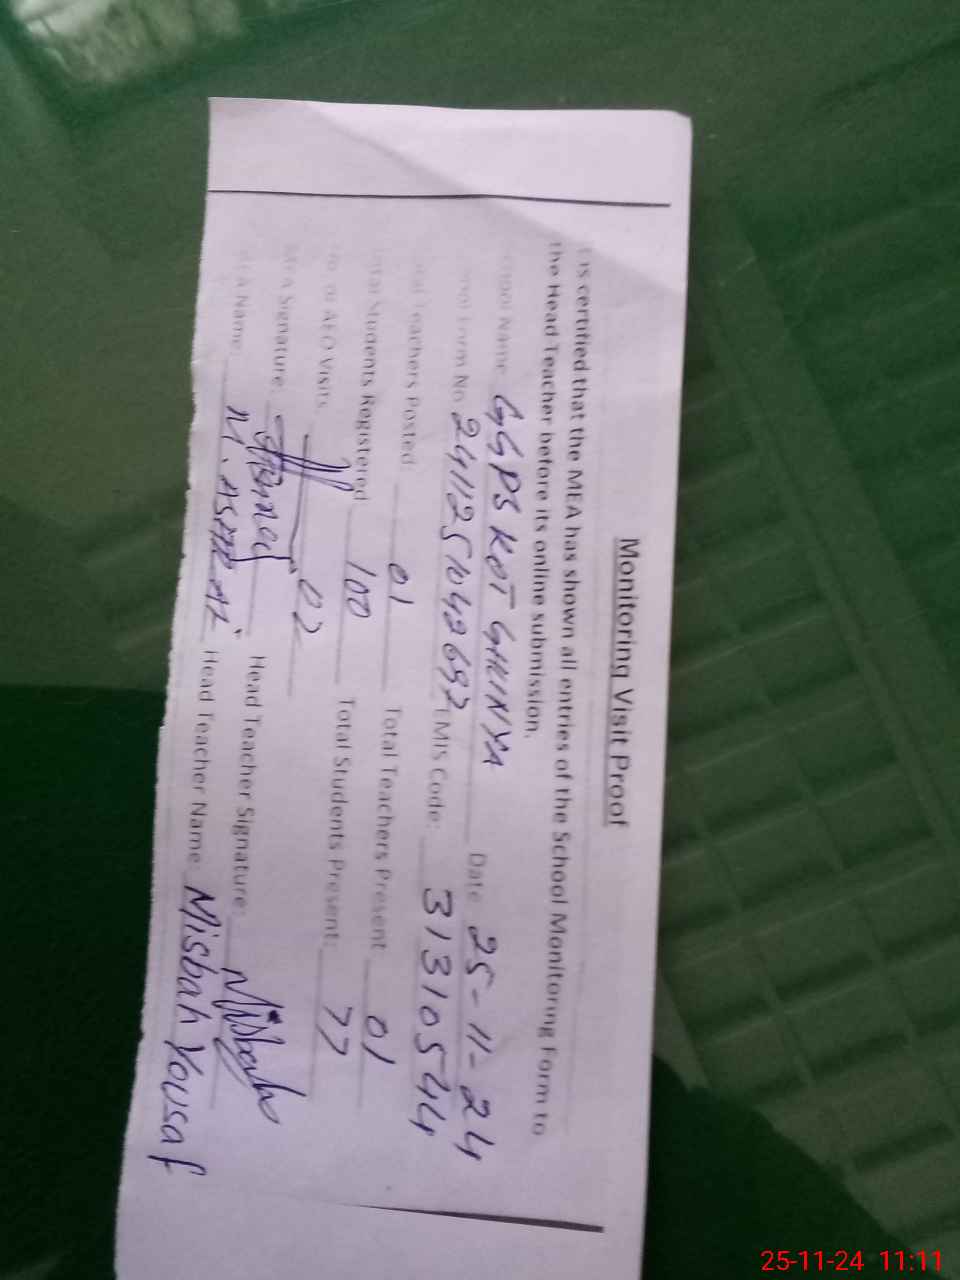 Monitoring Visit Proof
It is certified that the MEA has shown all entries of the School Monitoring Form to
the Head Teacher before its online submission.
School Name GGPS KOT GHUNYA Date 25-11-24
Form No EMIS Code: 31310544
Total Teachers Posted 01 Total Teachers Present 01
Total Students Registered 100 Total Students Present: 77
No of AEO Visits 02
MEA Signature Head Teacher Signature: Misbah
MEA Name: Head Teacher Name Misbah Yousaf
25-11-24 11:11